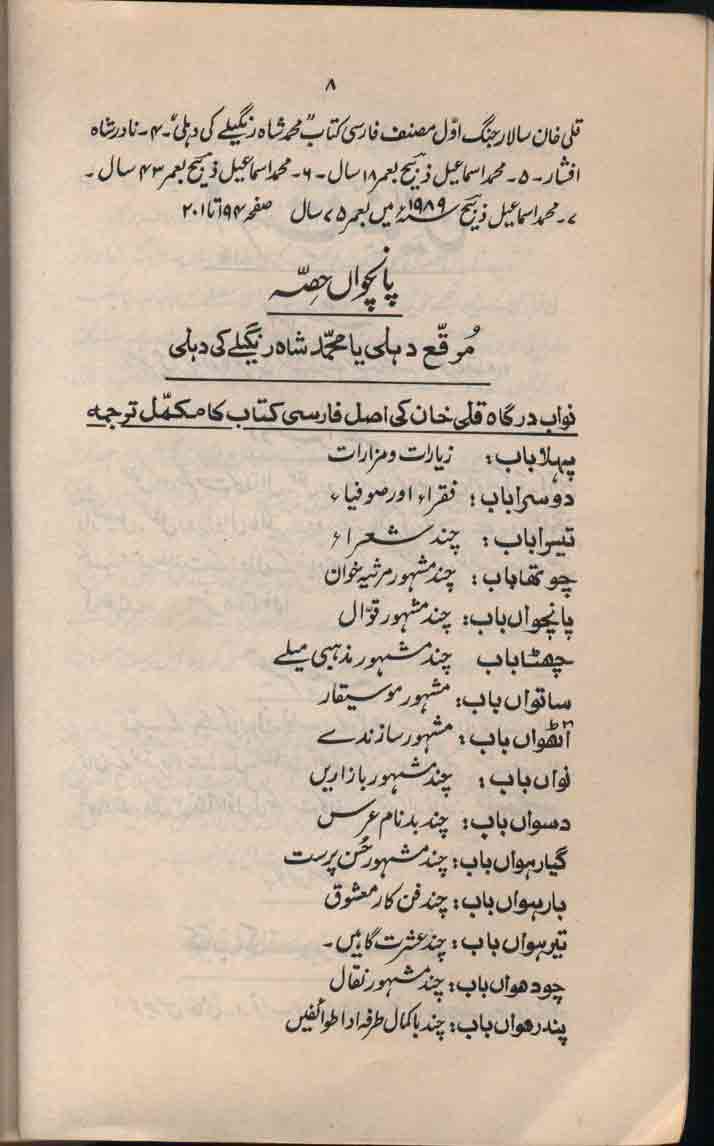 ۸
قلی خان سالار جنگ اوّل مصنف فارسی کتاب "محمد شاہ رنگیلے کی دہلی"۔ ۴۔ نادر شاہ
افشار۔ ۵۔ محمد اسماعیل ذبیح بعمر ۱۸ سال۔ ۶۔ محمد اسماعیل ذبیح بعمر ۴۳ سال۔
۷۔ محمد اسماعیل ذبیح ۱۹۸۹ء میں بعمر ۷۵ سال صفحہ ۱۹۴ تا ۲۰۱
پانچواں حصّہ
مُرقّع دہلی یا محمّد شاہ رنگیلے کی دہلی
نواب درگاہ قلی خان کی اصل فارسی کتاب کا مکمّل ترجمہ
پہلا باب: زیارات و مزارات
دوسرا باب: فقراء اور صوفیاء
تیسرا باب: چند شعراء
چوتھا باب: چند مشہور مرثیہ خوان
پانچواں باب: چند مشہور قوّال
چھٹا باب چند مشہور مذہبی میلے
ساتواں باب: مشہور موسیقار
آٹھواں باب: مشہور سازندے
نواں باب: چند مشہور بازاریں
دسواں باب: چند بدنام عرس
گیارہواں باب: چند مشہور حُسن پرست
بارہواں باب: چند فن کار معشوق
تیرہواں باب: چند عشرت گاہیں۔
چودھواں باب: چند مشہور نقال
پندرھواں باب: چند باکمال طرفہ ادا طوائفیں